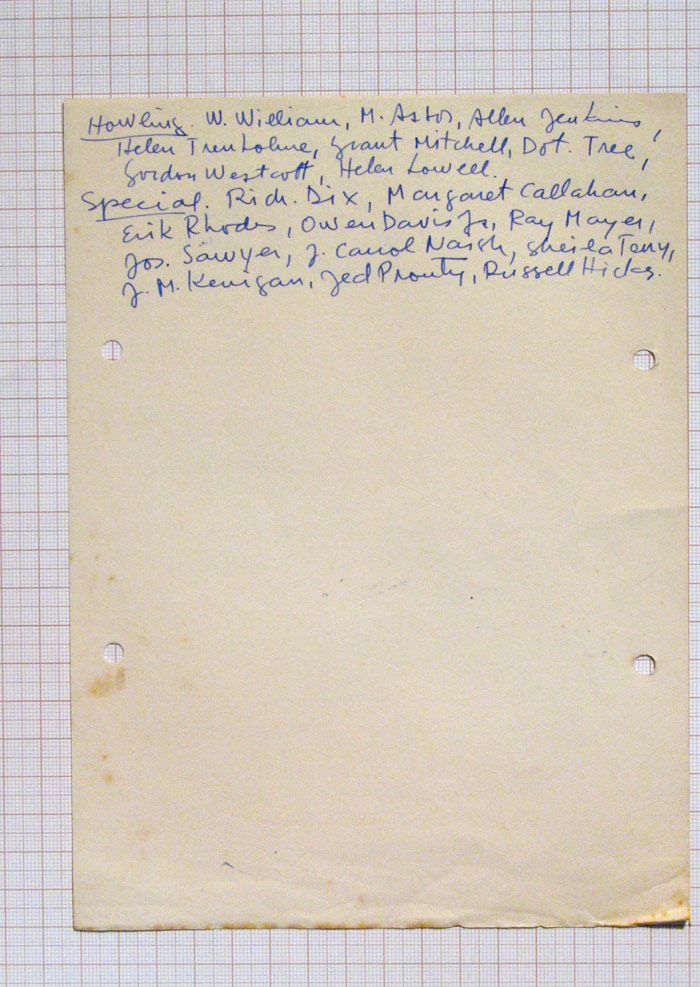 Howling. W. William, M. Astor, Allen Jenkins,
Helen Trenholme, Grant Mitchell, Dot. Tree,
Gordon Westcott, Helen Lowell.
Special. Rich. Dix, Margaret Callahan,
Erik Rhodes, Owen Davis Jr, Ray Mayer,
Jos. Sawyer, J. Carrol Naish, Sheila Terry,
J. M. Kerrigan, Jed Prouty, Russell Hicks.